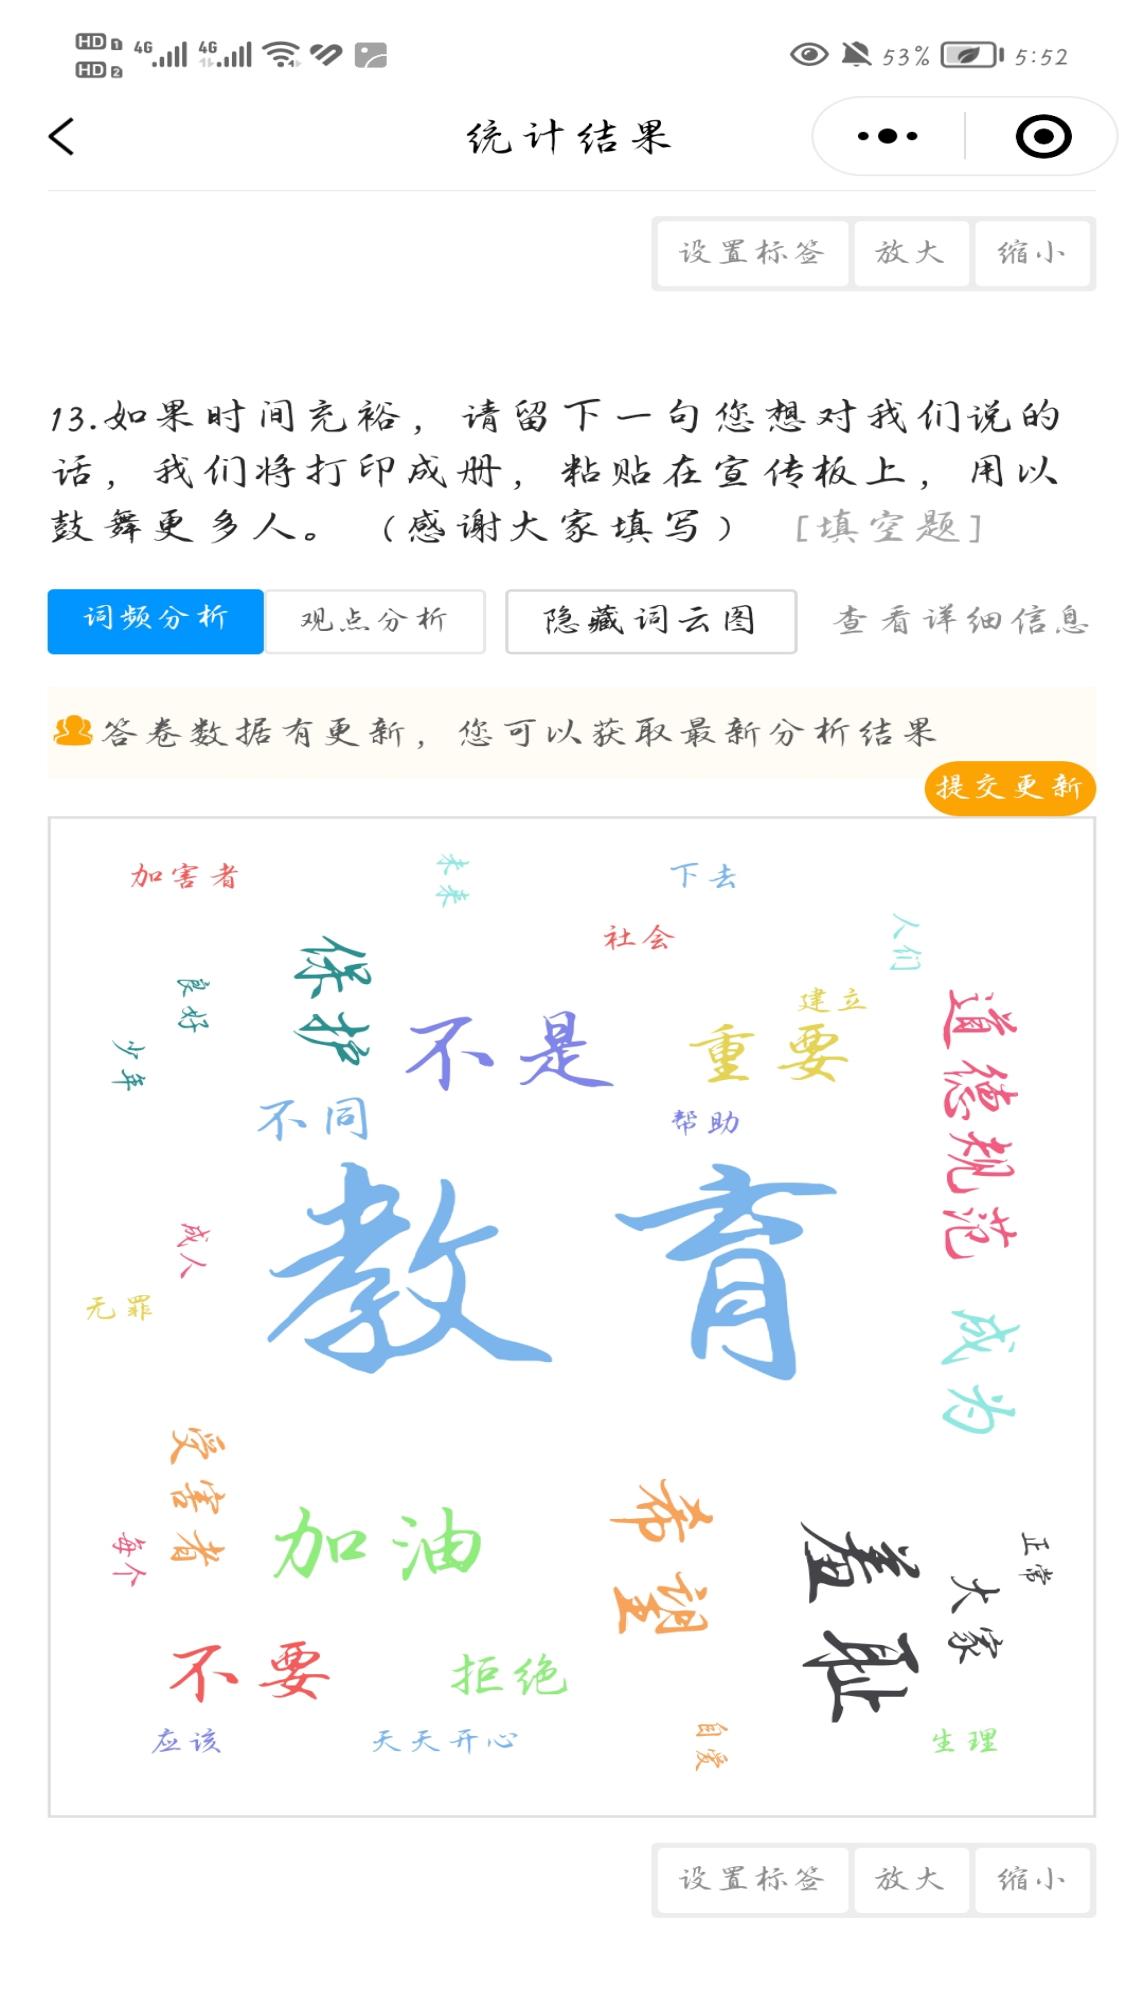 HD 1 4G 4G 53% 5:52
HD 2
统计结果
设置标签 放大 缩小
13.如果时间充裕，请留下一句您想对我们说的
话，我们将打印成册，粘贴在宣传板上，用以
鼓舞更多人。（感谢大家填写） [填空题]
词频分析 观点分析 隐藏词云图 查看详细信息
答卷数据有更新，您可以获取最新分析结果
提交更新
加害者
未来
下去
社会
人们
保护
良好
不是
建立
重要
道德规范
少年
不同
帮助
教育
成人
无罪
成为
受害者
加油
希望
羞耻
正常
每个
大家
不要
拒绝
应该
天天开心
自爱
生理
设置标签 放大 缩小